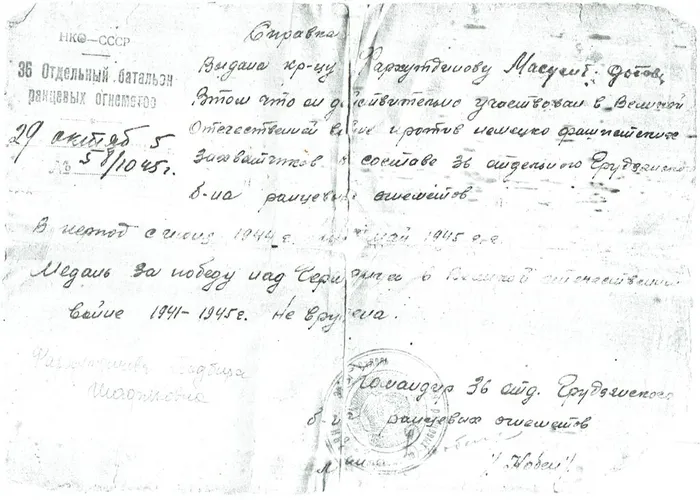 НКО-СССР
36 Отдельный батальон
ранцевых огнеметов
29 октяб 5
№ 58/1045г.
Справка
Выдана кр-цу
В том что он действительно участвовал в Великой
Отечественной войне против немецко фашистских
Захватчиков в составе 36 отдельного Грудзянского
б-на ранцевых огнеметов
В период с июня 1944 г. май 1945 г.
Медаль За победу над Германией в Великой отечественной
войне 1941-1945г. Не вручена.
Командир 36 отд. Грудзянского
б-на ранцевых огнеметов